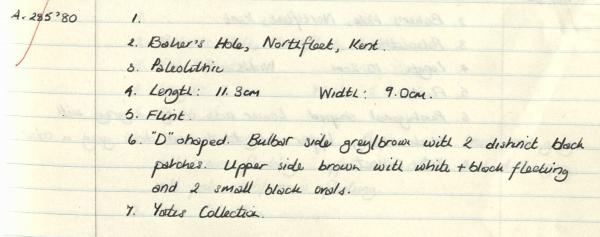 A. 285'80
1.
2. Baker's Hole, Northfleet, Kent.
3. Paleolithic
4. Length: 11.3cm Width: 9.0cm.
5. Flint.
6. "D" shaped. Bulbar side grey/brown with 2 distinct black
patches. Upper side brown with white + black flecking
and 2 small black ovals.
7. Yates Collection.